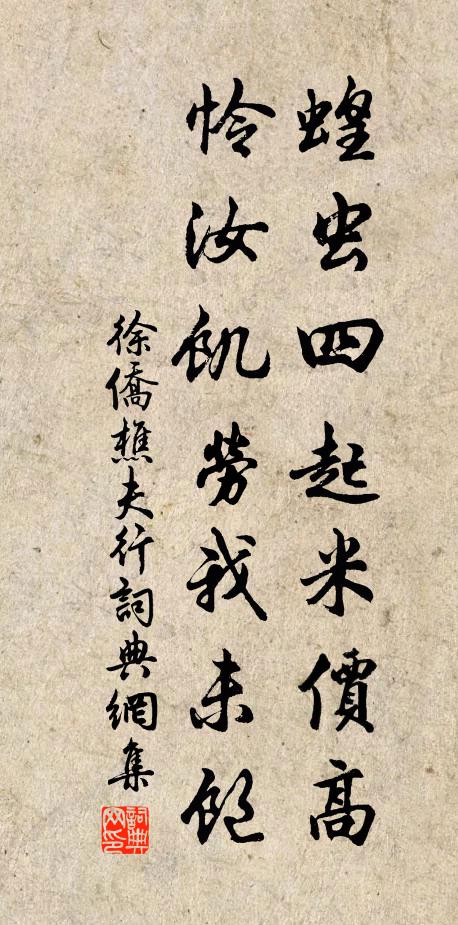 蝗虫四起米價高
怜汝飢勞我未飽
徐僑樵夫行詞典網集
詞典网印